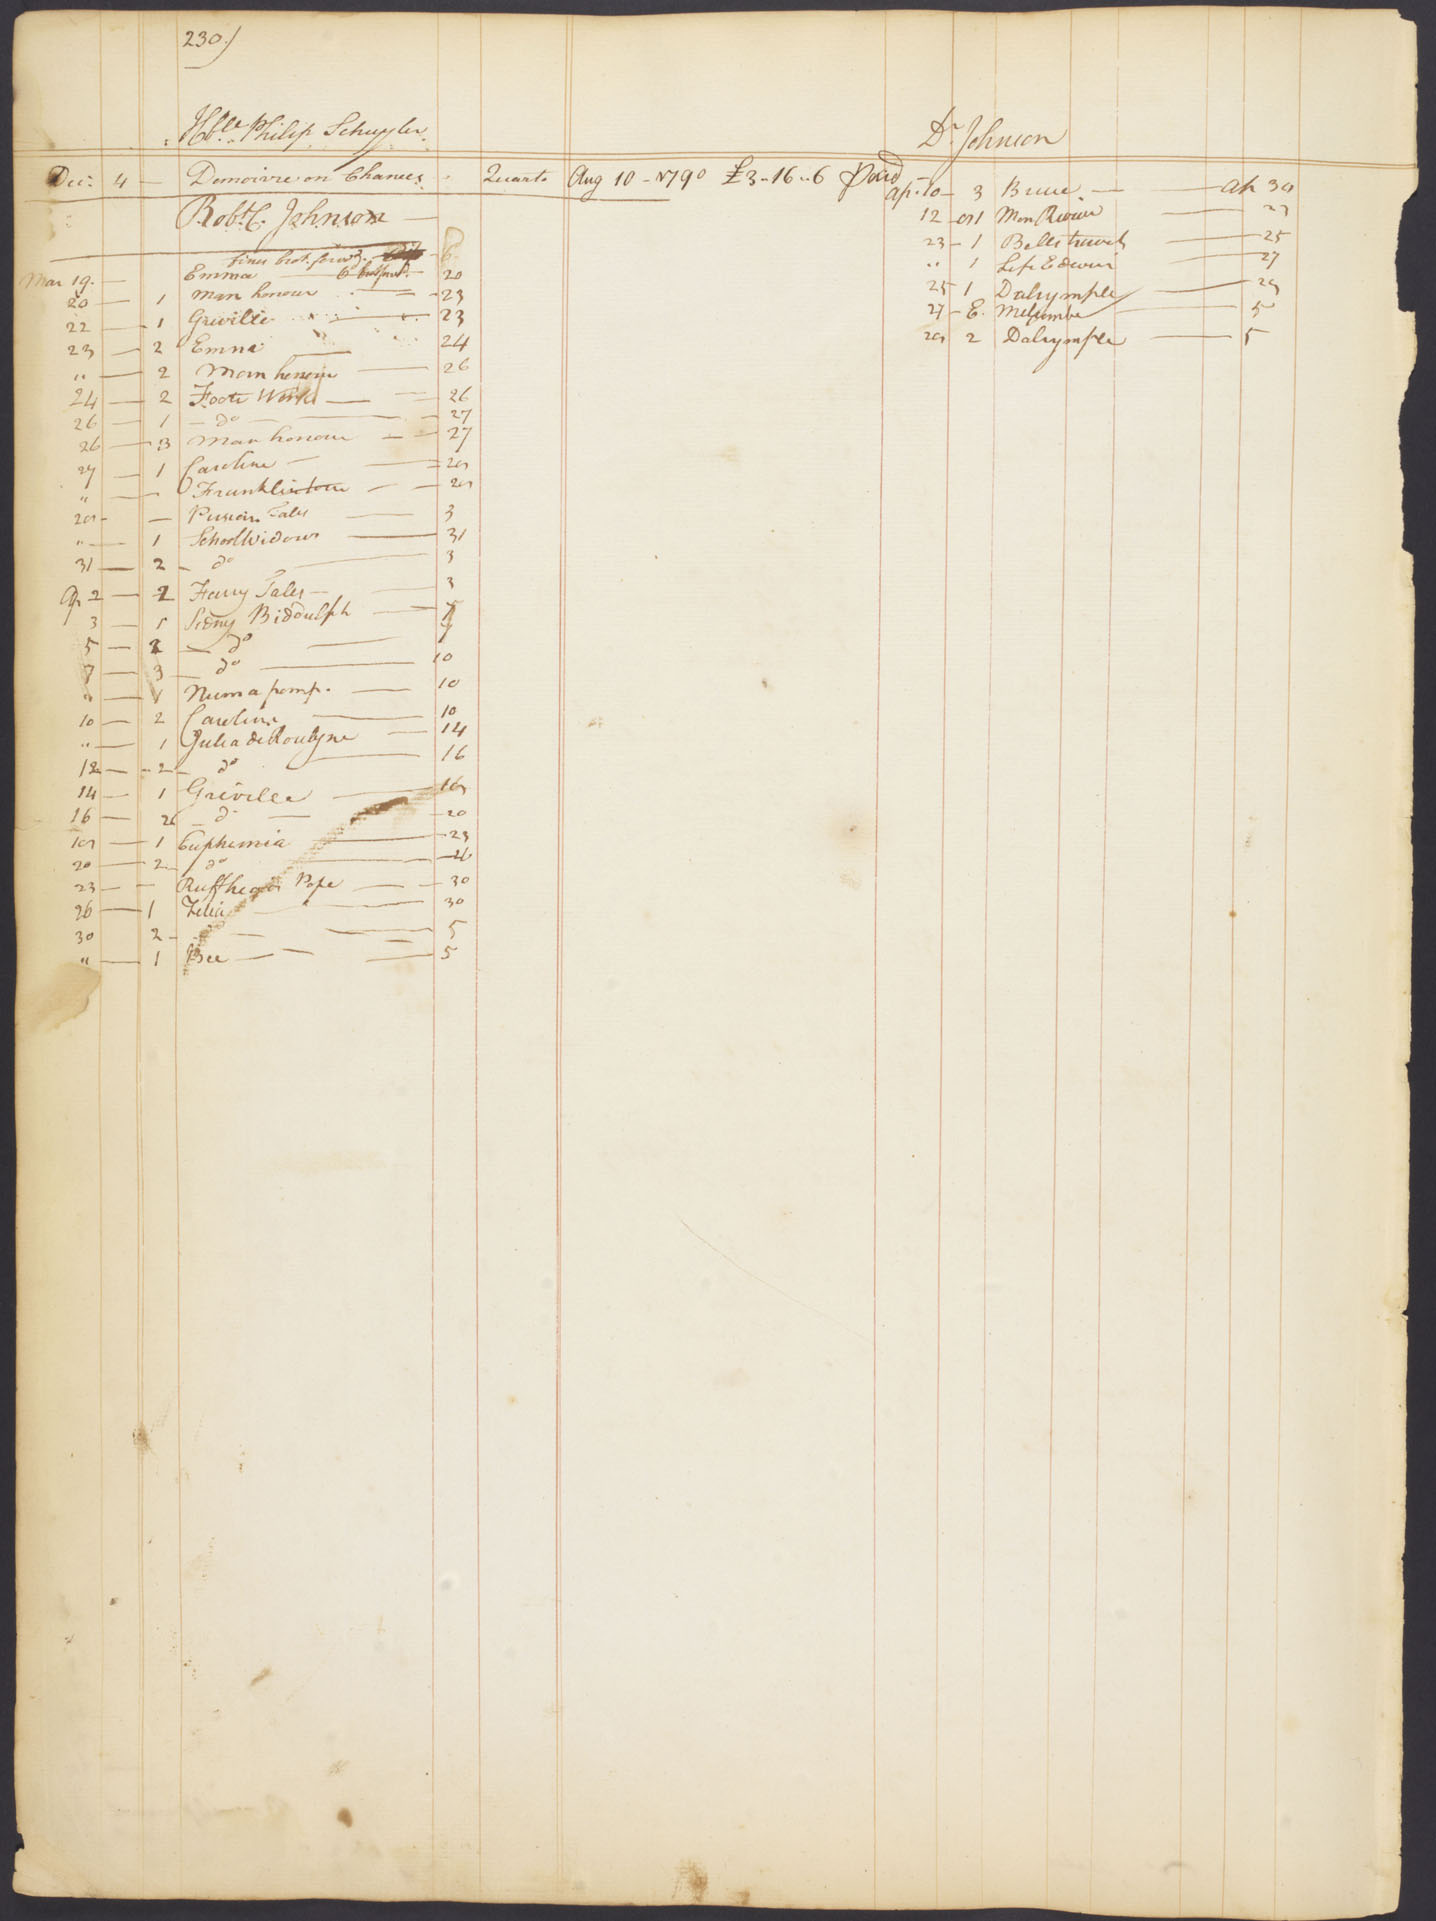 230)
Hble. Philip Schuyler.
Dec: 4 — Demoivre on Chances Quarto Aug 10 - 1790 £3 - 16 - 6 paid
Robt. C. Johnson
fines brot. forwd. 6
Mar 19. — Emma 6 20
20 — 1 Man honour — 23
22 — 1 Greville — 23
23 — 2 Emma — 24
" — 2 Man honour — 26
24 — 2 Foote Works — 26
26 — 1 — do — 27
26 — 3 Man honour — 27
27 — 1 Caroline — 29
" — Franklin — 29
29 - — Persian Tales — 3
" — 1 School Widows — 31
31 — 2 — do — 3
Ap 2 — 2 Fairy Tales — 3
3 — 1 Sidny Biddulph — 5
5 — 2 — do — 7
7 — 3 — do — 10
" — 1 Numa pomp. — 10
10 — 2 Caroline — 10
" — 1 Julia de Roubyne — 14
12 — 2 — do — 16
14 — 1 Greville — 19
16 — 2 — do — 20
19 — 1 Euphemia — 23
20 — 2 do — 26
23 — — Ruffheads Pope — 30
26 — 1 Zelia — 30
30 2 — — 5
" — 1 Bee — 5
Dr. Johnson
Ap. 10 — 3 Bruce — Ap 30
12 — 1 Mon Review — 23
23 — 1 Bells travels — 25
" 1 Life Edwin — 27
25 1 Dalrymple — 29
27 — E. Melcombe — 5
29 2 Dalrymple — 5